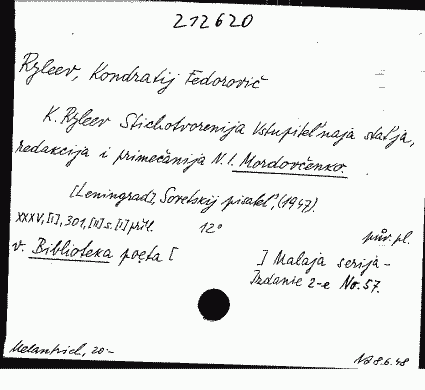 212620
Ryleev, Kondratij Fedorovič
K. Ryleev Stichotvorenija Vstupitel'naja stat'ja,
redakcija i primečanija N. I. Mordovčenko.
[Leningrad], Sovetskij pisatel', (1947).
XXXV, [I], 301, [II] s. [I] příl. 12° pův. pl.
v. Biblioteka poeta [ ] Malaja serija -
Izdanie 2-e No. 57.
Melantrich, 20.- 8.6.48